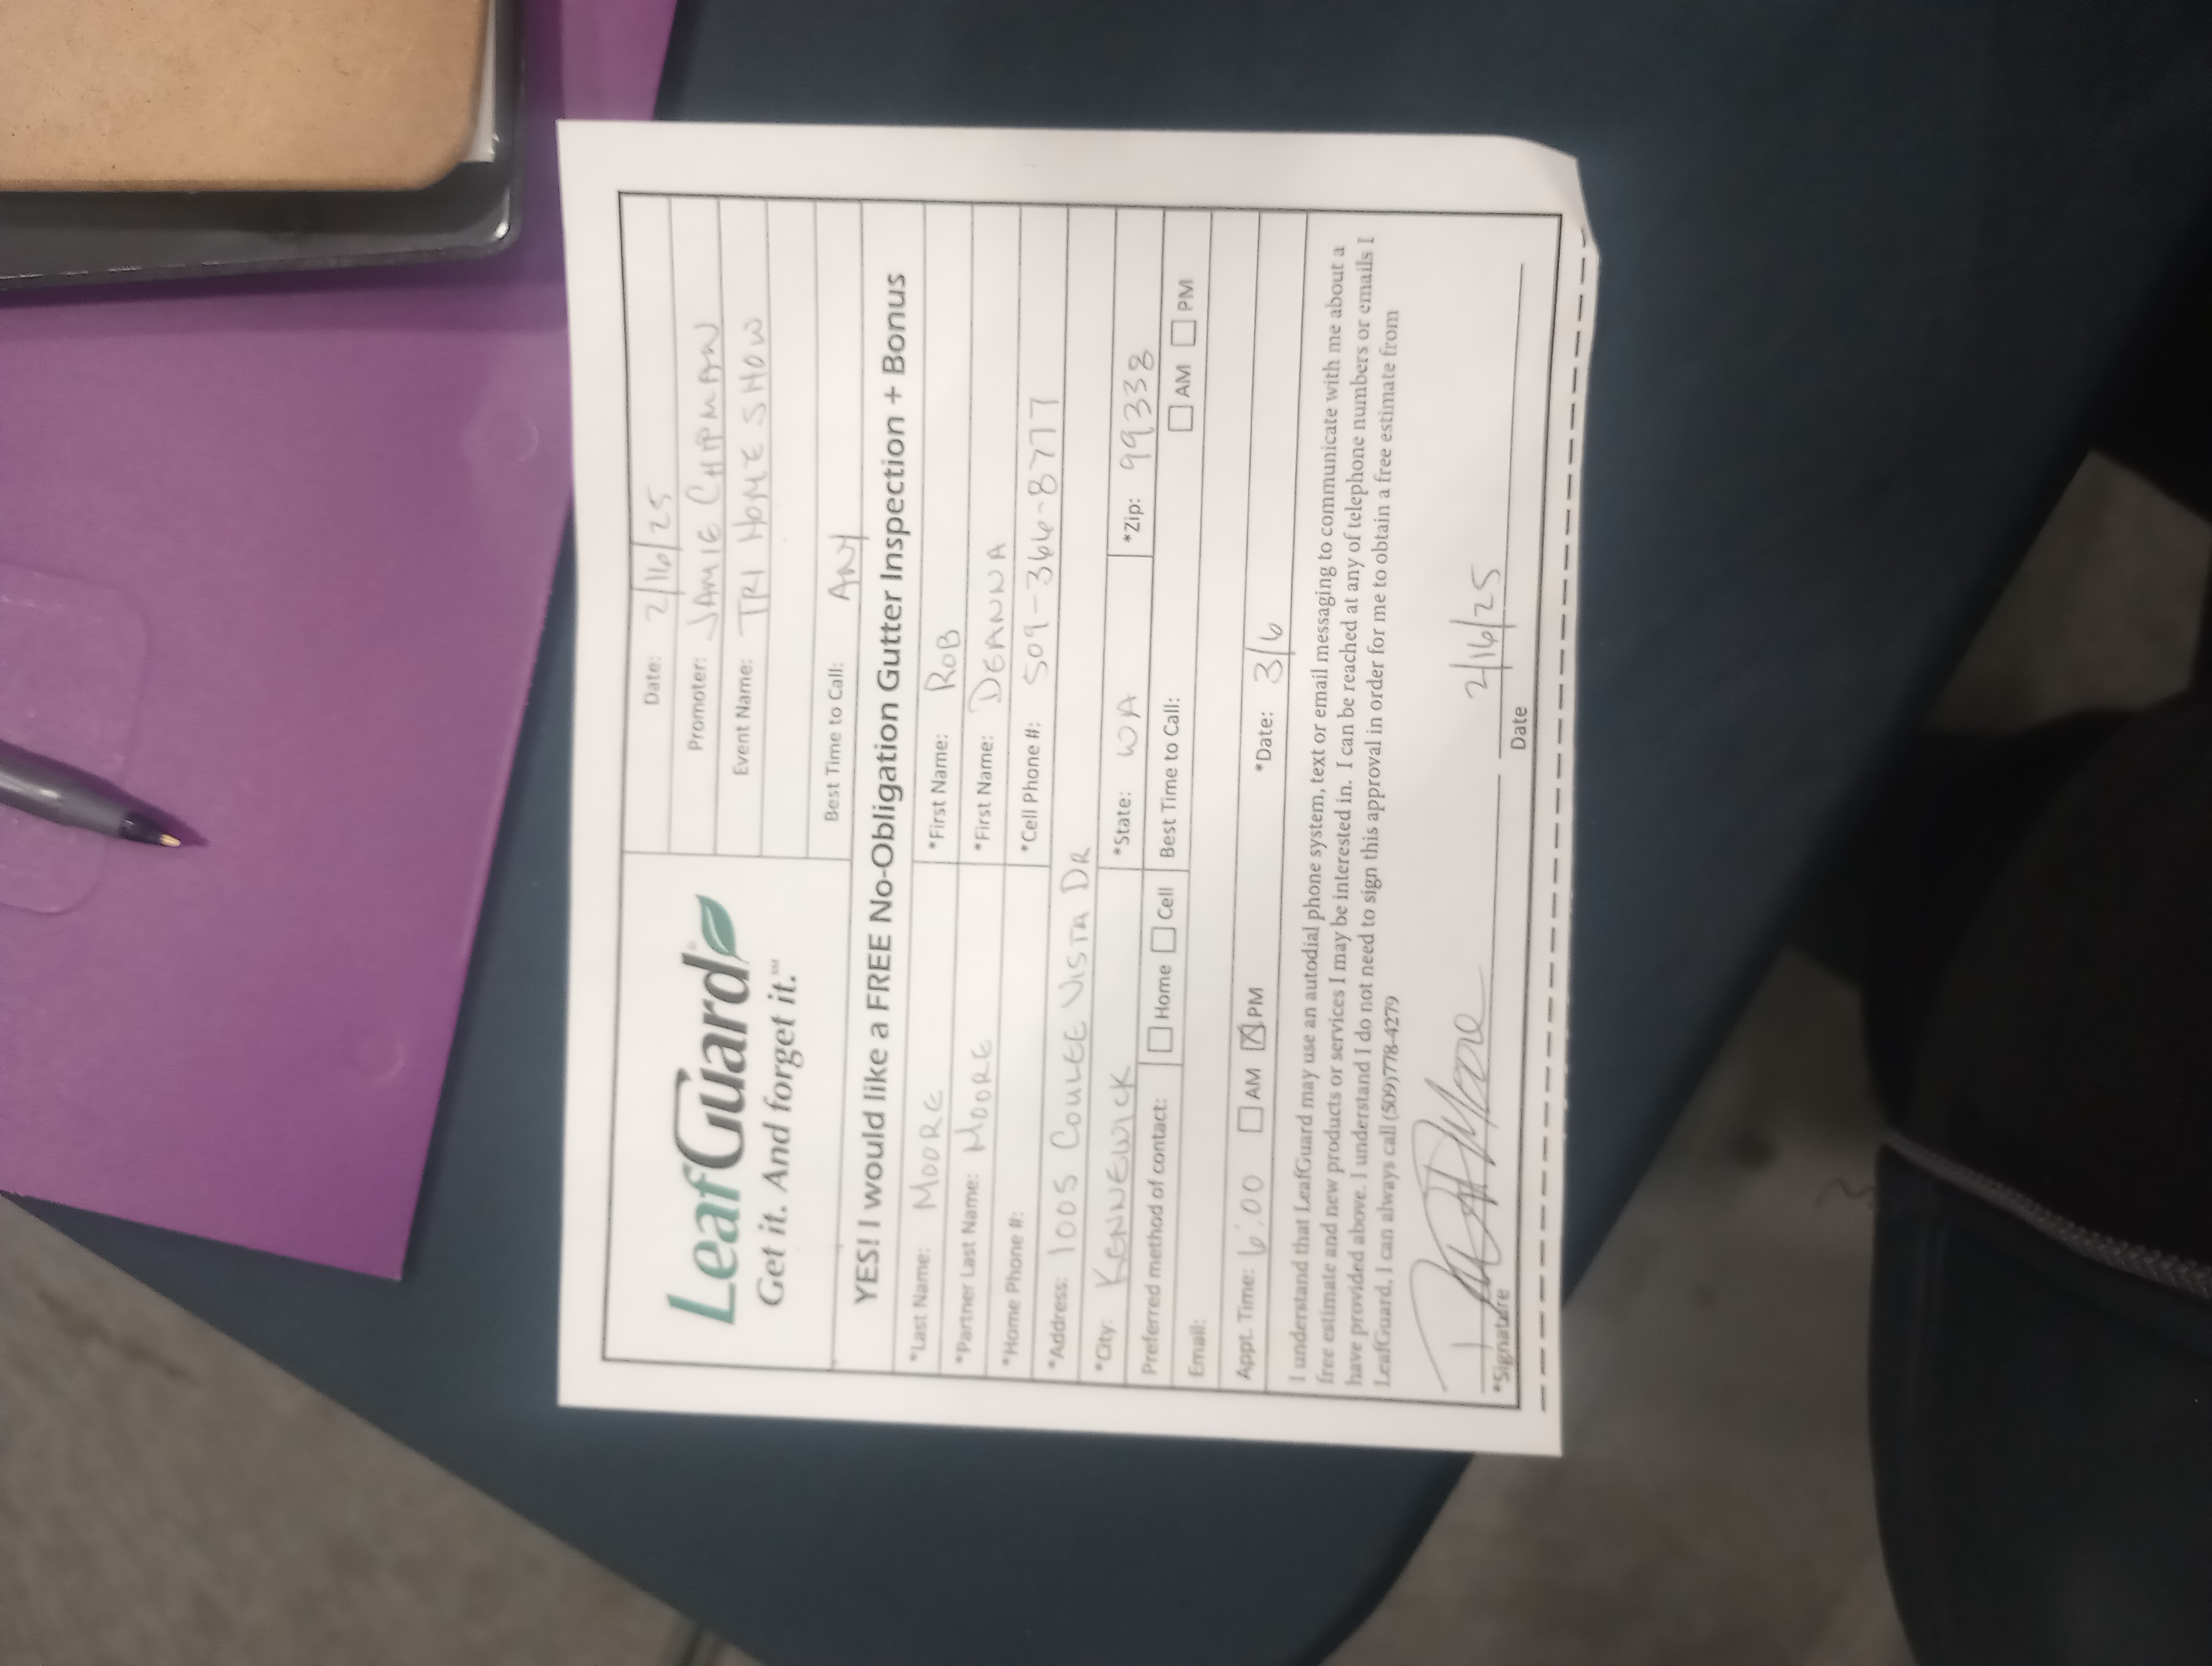 LeafGuard
Get it. And forget it.℠
Date: 2/16/25
Promoter: JAMIE CHIPMAN
Event Name: TRI HOME SHOW
Best Time to Call: ANY
YES! I would like a FREE No-Obligation Gutter Inspection + Bonus
*Last Name: MOORE *First Name: ROB
*Partner Last Name: MOORE *First Name: DEANNA
*Home Phone #: *Cell Phone #: 509-366-8777
*Address: 1005 COULEE VISTA DR
*City: KENNEWICK *State: WA *Zip: 99338
Preferred method of contact: Home Cell Best Time to Call: AM PM
Email:
Appt. Time: 6:00 AM PM *Date: 3/6
I understand that LeafGuard may use an autodial phone system, text or email messaging to communicate with me about a
free estimate and new products or services I may be interested in. I can be reached at any of telephone numbers or emails I
have provided above. I understand I do not need to sign this approval in order for me to obtain a free estimate from
LeafGuard, I can always call (509)778-4279
Moore 2/16/25
*Signature Date